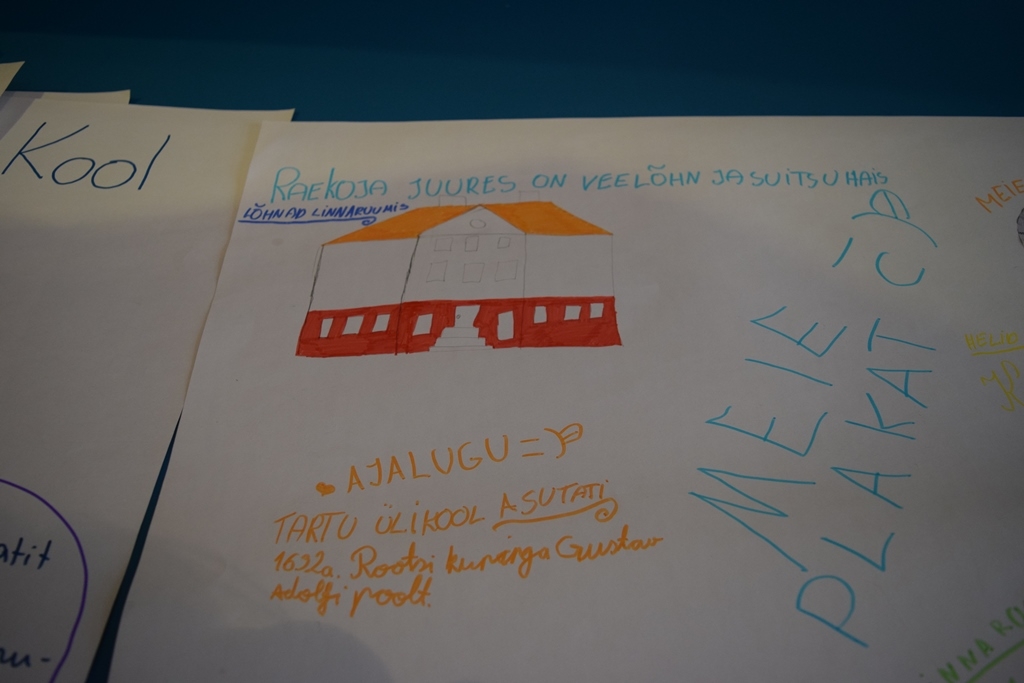 Kool
RAEKOJA JUURES ON VEELÕHN JA SUITSU HAIS
LÕHNAD LINNARUUMIS
AJALUGU =
TARTU ÜLIKOOL ASUTATI
1632a. Rootsi kuninga Gustav
Adolfi poolt.
MEIE
PLAKAT
MEIE
HELID